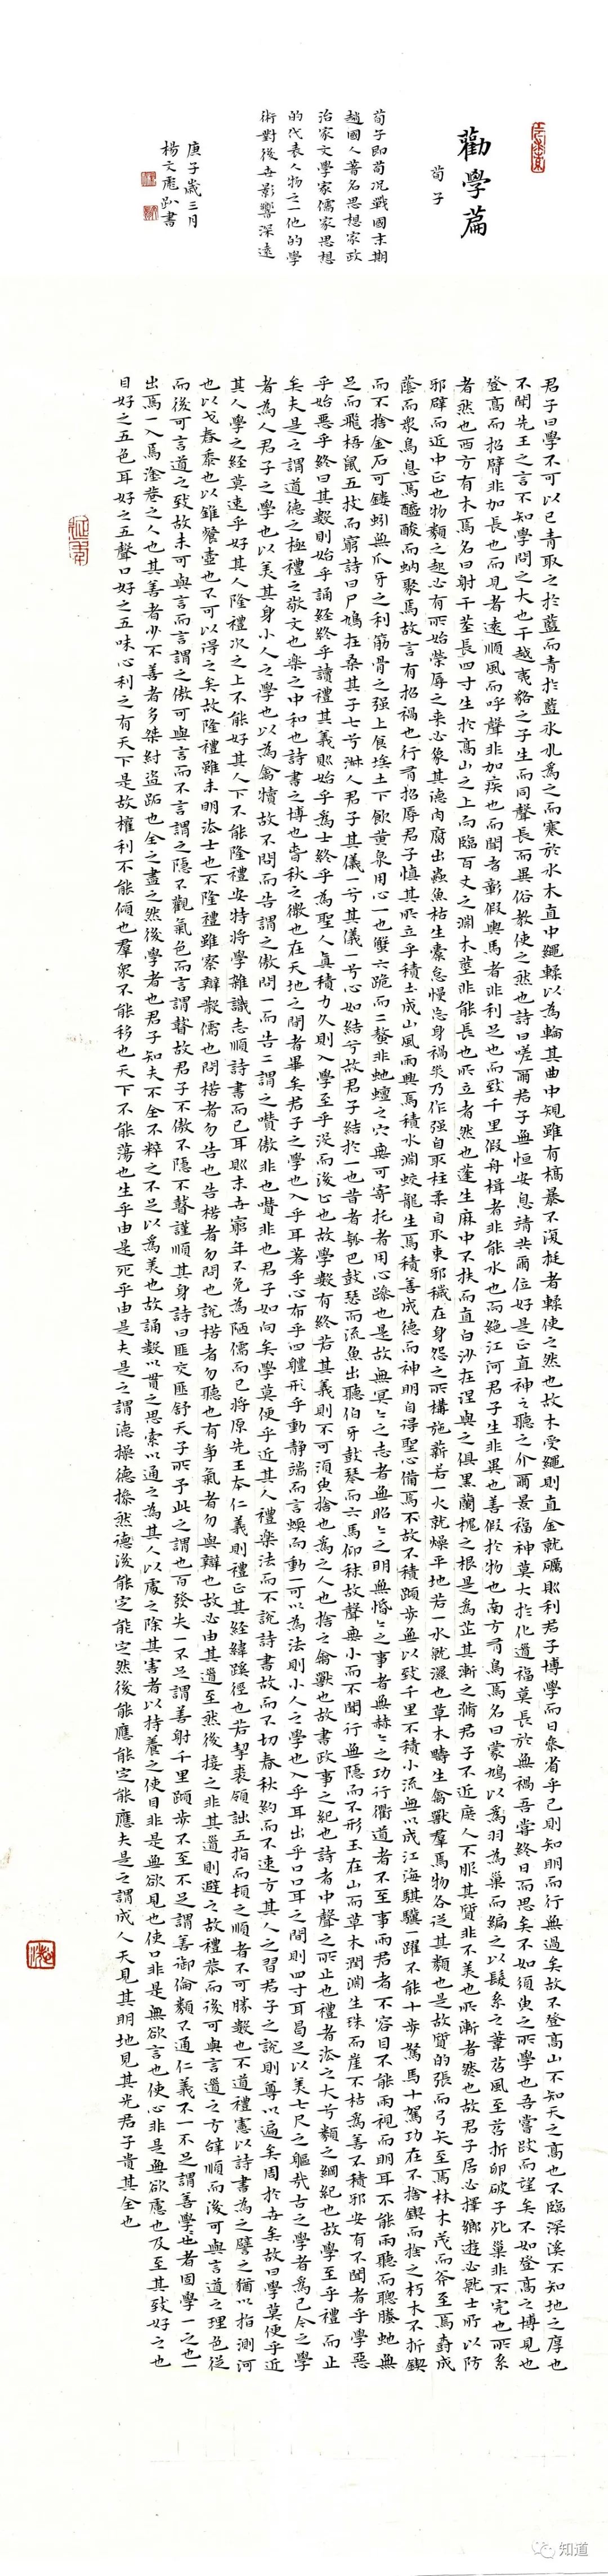 勸學篇
荀子
荀子即荀况戰國末期
趙國人著名思想家政
治家文學家儒家思想
的代表人物之一他的學
術對後世影響深遠
庚子歲三月
楊文彪趴書
君子曰學不可以已青取之於藍而青於藍冰水為之而寒於水木直中繩輮以為輪其曲中規雖有槁暴不復挺者輮使之然也故木受繩則直金就礪則利君子博學而日參省乎己則知明而行無過矣故不登高山不知天之高也不臨深溪不知地之厚也
不聞先王之言不知學問之大也干越夷貉之子生而同聲長而異俗教使之然也詩曰嗟爾君子無恒安息靖共爾位好是正直神之聽之介爾景福神莫大於化道福莫長於無禍吾嘗終日而思矣不如須臾之所學也吾嘗跂而望矣不如登高之博見也
登高而招臂非加長也而見者遠順風而呼聲非加疾也而聞者彰假輿馬者非利足也而致千里假舟楫者非能水也而絕江河君子生非異也善假於物也南方有鳥焉名曰蒙鳩以為羽為巢而編之以髮系之葦苕風至苕折卵破子死巢非不完也所系
者然也西方有木焉名曰射干莖長四寸生於高山之上而臨百丈之淵木莖非能長也所立者然也蓬生麻中不扶而直白沙在涅與之俱黑蘭槐之根是為芷其漸之滫君子不近庶人不服其質非不美也所漸者然也故君子居必擇鄉遊必就士所以防
邪辟而近中正也物類之起必有所始榮辱之來必象其德肉腐出蟲魚枯生蠹怠慢忘身禍災乃作强自取柱柔自取束邪穢在身怨之所構施薪若一火就燥平地若一水就濕也草木疇生禽獸羣焉物各從其類也是故質的張而弓矢至焉林木茂而斧至焉樹成
蔭而衆鳥息焉醯酸而蚋聚焉故言有招禍也行有招辱君子慎其所立乎積土成山風雨興焉積水淵蛟龍生焉積善成德而神明自得聖心備焉不故不積蹞步無以致千里不積小流無以成江海騏驥一躍不能十步駑馬十駕功在不捨鍥而捨之朽木不折鍥
而不捨金石可鏤蚓無爪牙之利筋骨之强上食埃土下飲黄泉用心一也蟹六跪而二螯非蛇蟺之穴無可寄托者用心躁也是故無冥冥之志者無昭昭之明無惛惛之事者無赫赫之功行衢道者不至事兩君者不容目不能兩視而明耳不能兩聽而聰螣蛇無
足而飛梧鼠五技而窮詩曰尸鳩在桑其子七兮淑人君子其儀一兮其儀一兮心如結兮故君子結於一也昔者瓠巴鼓瑟而流魚出聽伯牙鼓琴而六馬仰秣故聲無小而不聞行無隱而不形玉在山而草木潤淵生珠而崖不枯為善不積邪安有不聞者乎學惡
乎始惡乎終曰其數則始乎誦經終乎讀禮其義則始乎為士終乎為聖人真積力久則入學至乎没而後止也故學數有終若其義則不可須臾捨也為之人也捨之禽獸也故書政事之紀也詩者中聲之所止也禮者法之大兮類之綱紀也故學至乎禮而止
矣夫是之謂道德之極禮之敬文也樂之中和也詩書之博也春秋之微也在天地之間者畢矣君子之學也入乎耳著乎心布乎四體形乎動静端而言蝡而動一可以為法則小人之學也入乎耳出乎口口耳之間則四寸耳曷足以美七尺之軀哉古之學者為己今之學
者為人君子之學也以美其身小人之學也以為禽犢故不問而告謂之傲問一而告二謂之囋傲非也囋非也君子如向矣學莫便乎近其人禮樂法而不說詩書故而不切春秋約而不速方其人之習君子之說則尊以遍矣周於世矣故曰學莫便乎近
其人學之經莫速乎好其人隆禮次之上不能好其人下不能隆禮安特將學雜識志順詩書而已耳則末世窮年不免為陋儒而已將原先王本仁義則禮正其經緯蹊徑也若挈裘領詘五指而頓之順者不可勝數也不道禮憲以詩書為之譬之猶以指測河
也以戈舂黍也以錐餐壺也不可以得之矣故隆禮雖未明法士也不隆禮雖察辯散儒也問楛者勿告也告楛者勿問也說楛者勿聽也有爭氣者勿與辯也故必由其道至然後接之非其道則避之故禮恭而後可與言道之方辭順而後可與言道之理色從
而後可言道之致故未可與言而言謂之傲可與言而不言謂之隱不觀氣色而言謂瞽故君子不傲不隱不瞽謹順其身詩曰匪交匪舒天子所予此之謂也百發失一不足謂善射千里蹞步不至不足謂善御倫類不通仁義不一不足謂善學學也者固學一之也一
出焉一入焉塗巷之人也其善者少不善者多桀紂盜跖也全之盡之然後學者也君子知夫不全不粹之不足以為美也故誦數以貫之思索以通之為其人以處之除其害者以持養之使目非是無欲見也使口非是無欲言也使心非是無欲慮也及至其致好之也
目好之五色耳好之五聲口好之五味心利之有天下是故權利不能傾也羣衆不能移也天下不能蕩也生乎由是死乎由是夫是之謂德操德操然德後能定能定然後能應能定能應夫是之謂成人天見其明地見其光君子貴其全也
知道